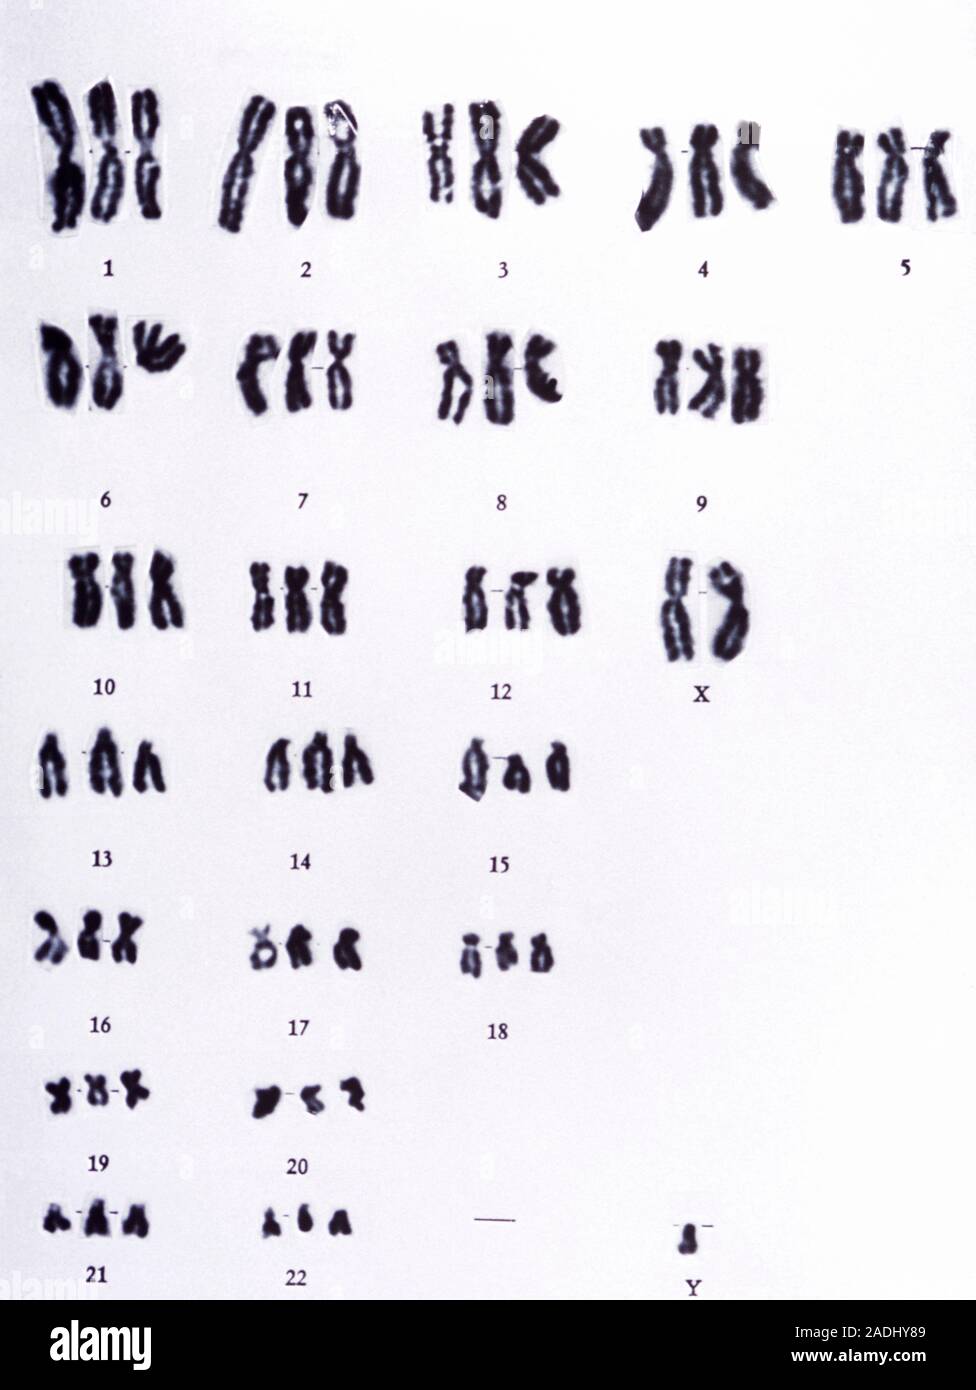 1 2 3 4 5
6 7 8 9
10 11 12 X
13 14 15
16 17 18
19 20
21 22 Y
a alamy
alamy
Image ID: 2ADHY89
www.alamy.com